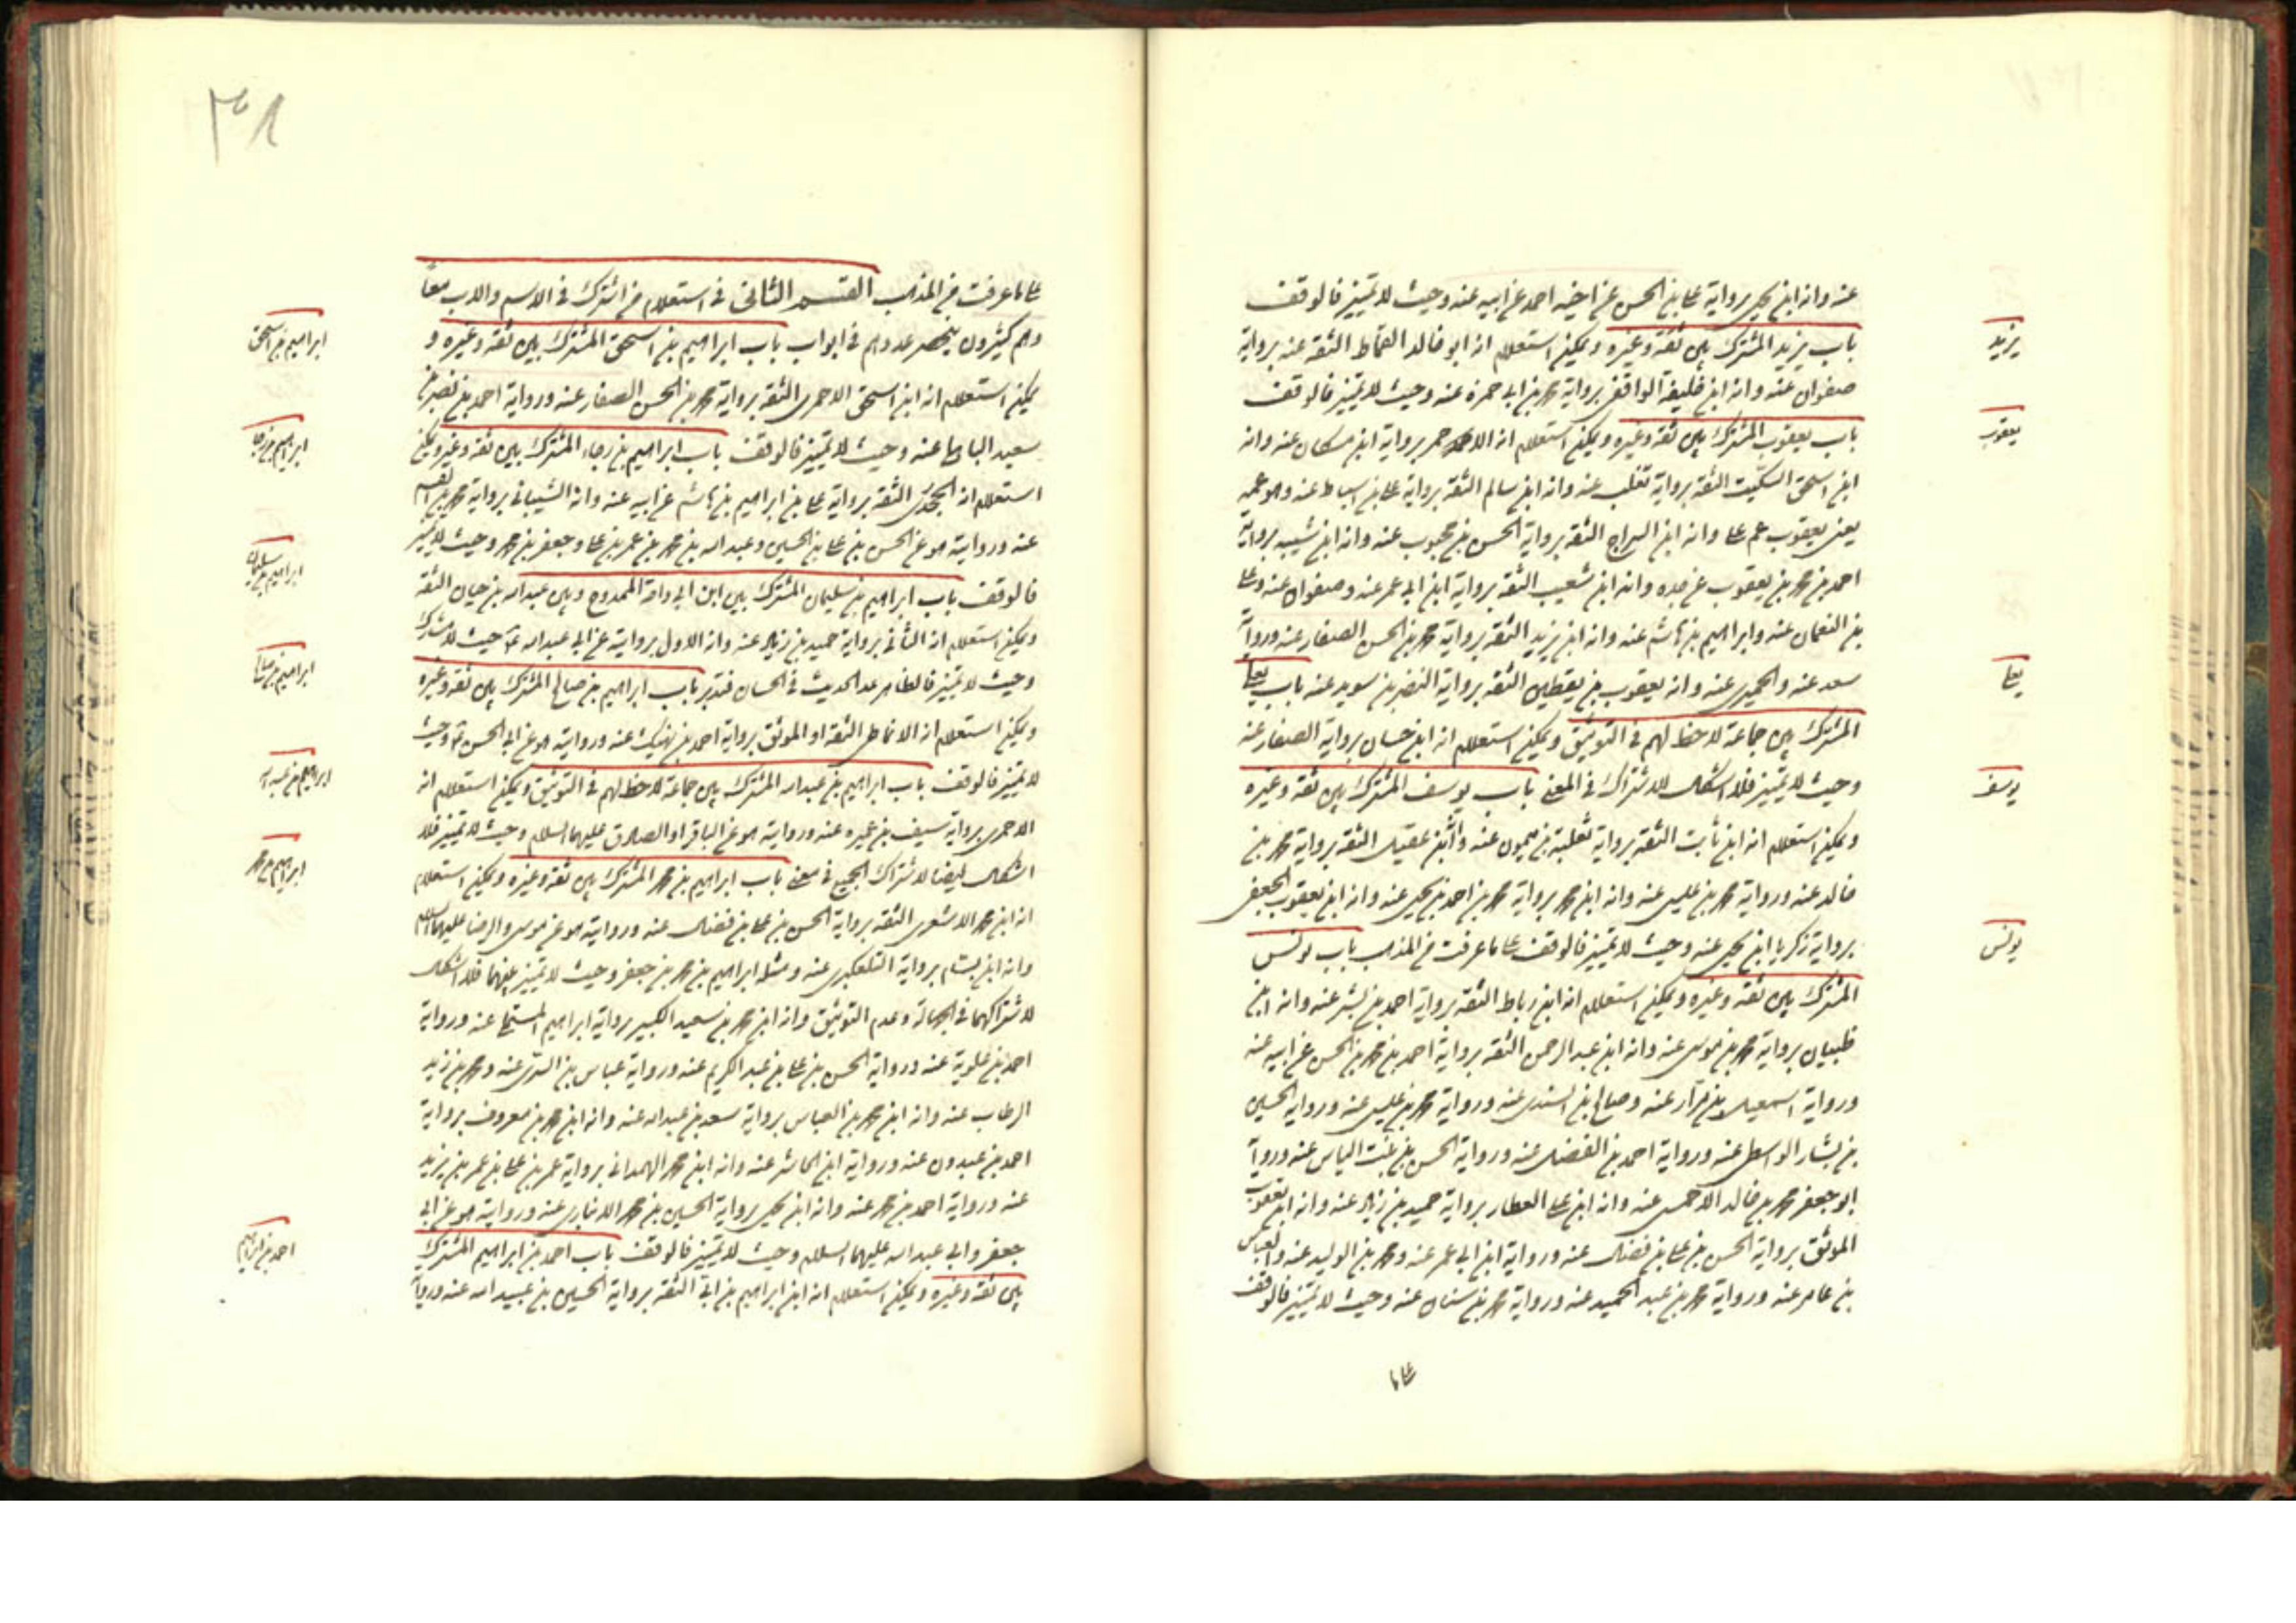 عنه وانه ابن يحيى برواية على بن الحسن عن اخيه احمد عن ابيه عنه وحيث لا تميز فالوقف
باب يزيد المشترك بين ثقة وغيره ويمكن استعلام انه ابو خالد القماط الثقة عنه برواية
صفوان عنه وانه ابن خليفة الواقفى برواية محمد بن ابى حمزة عنه وحيث لا تميز فالوقف
باب يعقوب المشترك بين ثقة وغيره ويمكن استعلام انه الاحمر برواية ابن مسكان عنه وانه
ابن اسحق السكيت الثقة برواية تغلب عنه وانه ابن سالم الثقة برواية على بن اسباط عنه وهو عمه
يعنى يعقوب عم على وانه ابن السراج الثقة برواية الحسن بن محبوب عنه وانه ابن شيبه برواية
احمد بن محمد بن يعقوب عن جده وانه ابن شعيب الثقة برواية ابن ابى عمير عنه وصفوان عنه وعلى
بن النعمان عنه وابراهيم بن هاشم عنه وانه ابن يزيد الثقة برواية محمد بن الحسن الصفار عنه ورواية
سعد عنه والحميرى عنه وانه يعقوب بن يقطين الثقة برواية النضر بن سويد عنه باب يعلى
المشترك بين جماعة لا حظ لهم فى التوثيق ويمكن استعلام انه ابن حسان برواية الصفار عنه
وحيث لا تميز فلا اشكال للاشتراك فى المعنى باب يوسف المشترك بين ثقة وغيره
ويمكن استعلام انه ابن ثابت الثقة برواية ثعلبة بن ميمون عنه وانه بن عقيل الثقة برواية محمد بن
خالد عنه ورواية محمد بن عيسى عنه وانه ابن محمد برواية محمد بن احمد بن يحيى عنه وانه ابن يعقوب الجعفى
برواية زكريا ابن يحيى عنه وحيث لا تميز فالوقف على ما عرفت من المذهب باب يونس
المشترك بين ثقة وغيره ويمكن استعلام انه ابن رباط الثقة برواية احمد بن بشر عنه وانه ابن
ظبيان برواية محمد بن موسى عنه وانه ابن عبد الرحمن الثقة برواية احمد بن محمد بن الحسن عن ابيه عنه
ورواية اسمعيل بن مرار عنه وصالح بن السندى عنه ورواية محمد بن عيسى عنه ورواية الحسين
بن بشار الواسطى عنه ورواية احمد بن الفضل عنه ورواية الحسن بن بنت الياس عنه ورواية
ابو جعفر محمد بن خالد الاحمسى عنه وانه ابن على العطار برواية حميد بن زياد عنه وانه ابن يعقوب
الموثق برواية الحسن بن على بن فضال عنه ورواية ابن ابى عمير عنه ومحمد بن الوليد عنه والعباس
بن عامر عنه ورواية محمد بن عبد الحميد عنه ورواية محمد بن سنان عنه وحيث لا تميز فالوقف
على ما
يزيد
يعقوب
يعلى
يوسف
يونس
على ما عرفت من المذهب القسم الثانى فى استعلام من اشترك فى الاسم والاب معا
وهم كثيرون ينحصر عددهم فى ابواب باب ابراهيم بن اسحق المشترك بين ثقة وغيره و
يمكن استعلام انه ابن اسحق الاحمرى الثقة برواية محمد بن الحسن الصفار عنه ورواية احمد بن نصر بن
سعيد الباهلى عنه وحيث لا تميز فالوقف باب ابراهيم بن رجاء المشترك بين ثقة وغيره ويمكن
استعلام انه الجحدرى الثقة برواية على بن ابراهيم بن هاشم عن ابيه عنه وانه الشيبانى برواية محمد بن القسم
عنه وروايته هو عن الحسن بن على بن الحسين وعبد الله بن محمد بن عمر بن على وجعفر بن محمد وحيث لا تميز
فالوقف باب ابراهيم بن سليمان المشترك بين ابن ابى داحة الممدوح وبين عبد الله بن حيان الثقة
ويمكن استعلام انه الثانى برواية حميد بن زياد عنه وانه الاول بروايته عن ابى عبد الله ع حيث لا مشارك
وحيث لا تميز فالظاهر عد الحديث فى الحسان فتدبر باب ابراهيم بن صالح المشترك بين ثقة وغيره
ويمكن استعلام انه الانماطى الثقة او الموثق برواية احمد بن نهيك عنه وروايته هو عن ابى الحسن ع وحيث
لا تميز فالوقف باب ابراهيم بن عبد الله المشترك بين جماعة لا حظ لهم فى التوثيق ويمكن استعلام انه
الاحمرى برواية سيف بن عميره عنه وروايته هو عن الباقر او الصادق عليهما السلام وحيث لا تميز فلا
اشكال ايضا لاشتراك الجميع فى معنى باب ابراهيم بن محمد المشترك بين ثقة وغيره ويمكن استعلام
انه ابن محمد الاشعرى الثقة برواية الحسن بن على بن فضال عنه وروايته هو عن موسى والرضا عليهما السلام
وانه ابن بسام برواية التلعكبرى عنه ومثله ابراهيم بن محمد بن جعفر وحيث لا تميز بينهما فلا اشكال
لاشتراكهما فى الجهالة وعدم التوثيق وانه ابن محمد بن سعيد الكبير برواية ابراهيم المستملى عنه ورواية
احمد بن علوية عنه ورواية الحسن بن على بن عبد الكريم عنه ورواية عباس بن السرى عنه ومحمد بن زيد
الرطاب عنه وانه ابن محمد بن العباس برواية سعد بن عبد الله عنه وانه ابن محمد بن معروف برواية
احمد بن عبدون عنه ورواية ابن الحاشر عنه وانه ابن محمد الهمدانى برواية عمر بن على بن عمر بن يزيد
عنه ورواية احمد بن محمد عنه وانه ابن يحيى برواية الحسين بن محمد الانبارى عنه وروايته هو عن ابى
جعفر وابى عبد الله عليهما السلام وحيث لا تميز فالوقف باب احمد بن ابراهيم المشترك
بين ثقة وغيره ويمكن استعلام انه ابن ابراهيم بن ابى الثقة برواية الحسين بن عبيد الله عنه ورواية
ابراهيم بن اسحق
ابراهيم بن رجا
ابراهيم بن سليمان
ابراهيم بن صالح
ابراهيم بن عبد الله
ابراهيم بن محمد
احمد بن ابراهيم